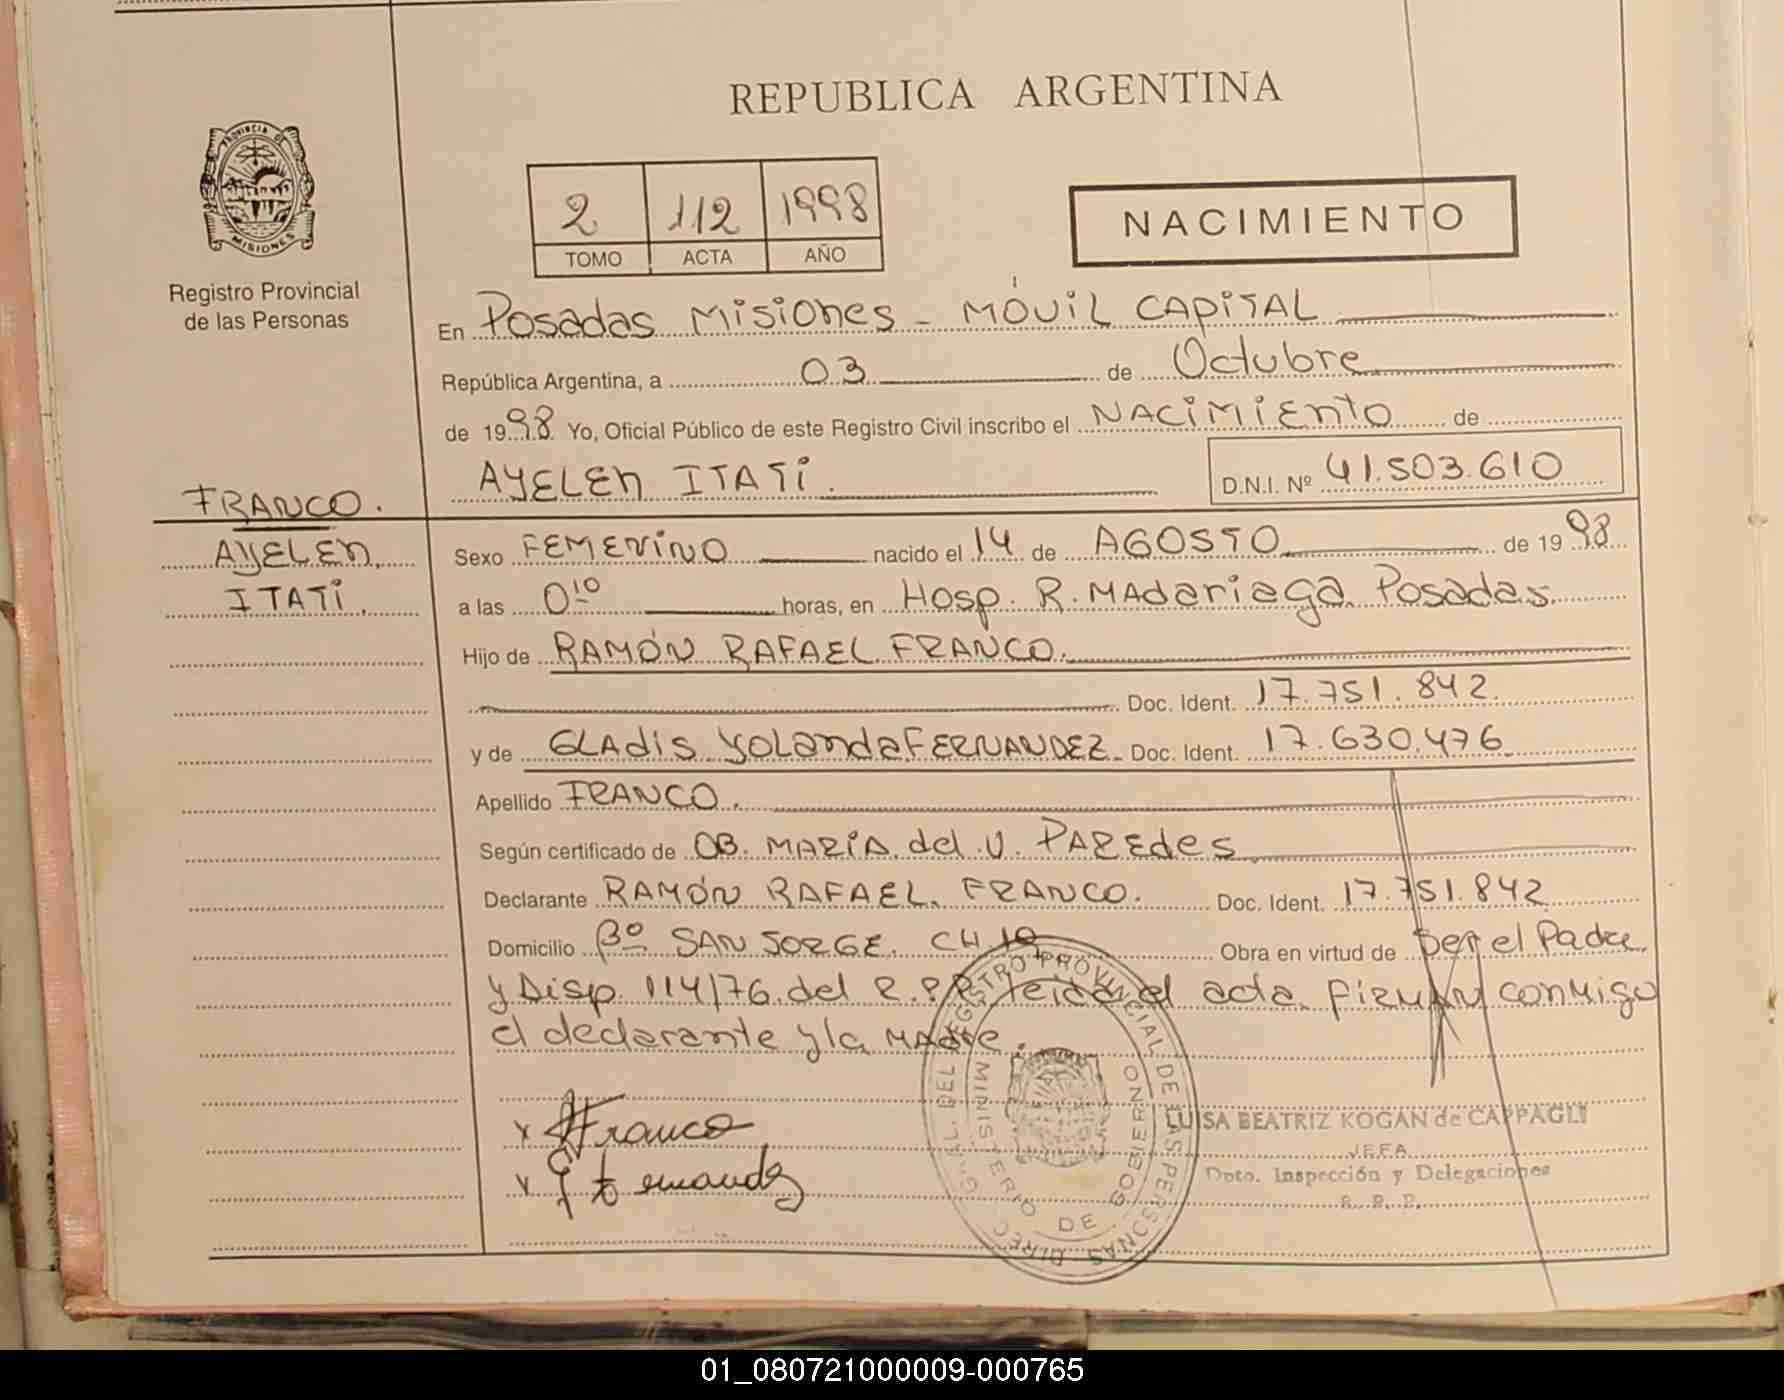 REPUBLICA ARGENTINA
PROVINCIA DE
MISIONES
Registro Provincial
de las Personas
2 112 1998
TOMO ACTA AÑO
NACIMIENTO
En Posadas Misiones - MÓVIL CAPITAL
República Argentina, a 03 de Octubre
de 1998 Yo, Oficial Público de este Registro Civil inscribo el NACIMIENTO de
AYELEN ITATI. D.N.I. Nº 41.503.610
FRANCO.
AYELEN
ITATI.
Sexo FEMENINO nacido el 14 de AGOSTO de 1998
a las 0 10 horas, en Hosp. R. MAdariaga Posadas
Hijo de RAMÓN RAFAEL FRANCO.
Doc. Ident. 17.751.842.
y de GLAdis YOLandaFERNANDEZ Doc. Ident. 17.630.476
Apellido FRANCO.
Según certificado de OB. MARIA del V. PAREdes
Declarante RAMÓN RAFAEL FRANCO. Doc. Ident. 17.751.842
Domicilio Bº SAN JORGE. CH 19 Obra en virtud de ser el Padre
y Disp. 114/76 del R.P.P. leida el acta FIRMAN conmigo
el declarante y la MAdre.
x Franco
x Fernandez
DIREC. GRAL. DEL REGISTRO PROVINCIAL DE LAS PERSONAS
MINISTERIO DE GOBIERNO
LUISA BEATRIZ KOGAN de CAPPAGLI
JEFA
Dpto. Inspección y Delegaciones
R. P. P.
01_080721000009-000765